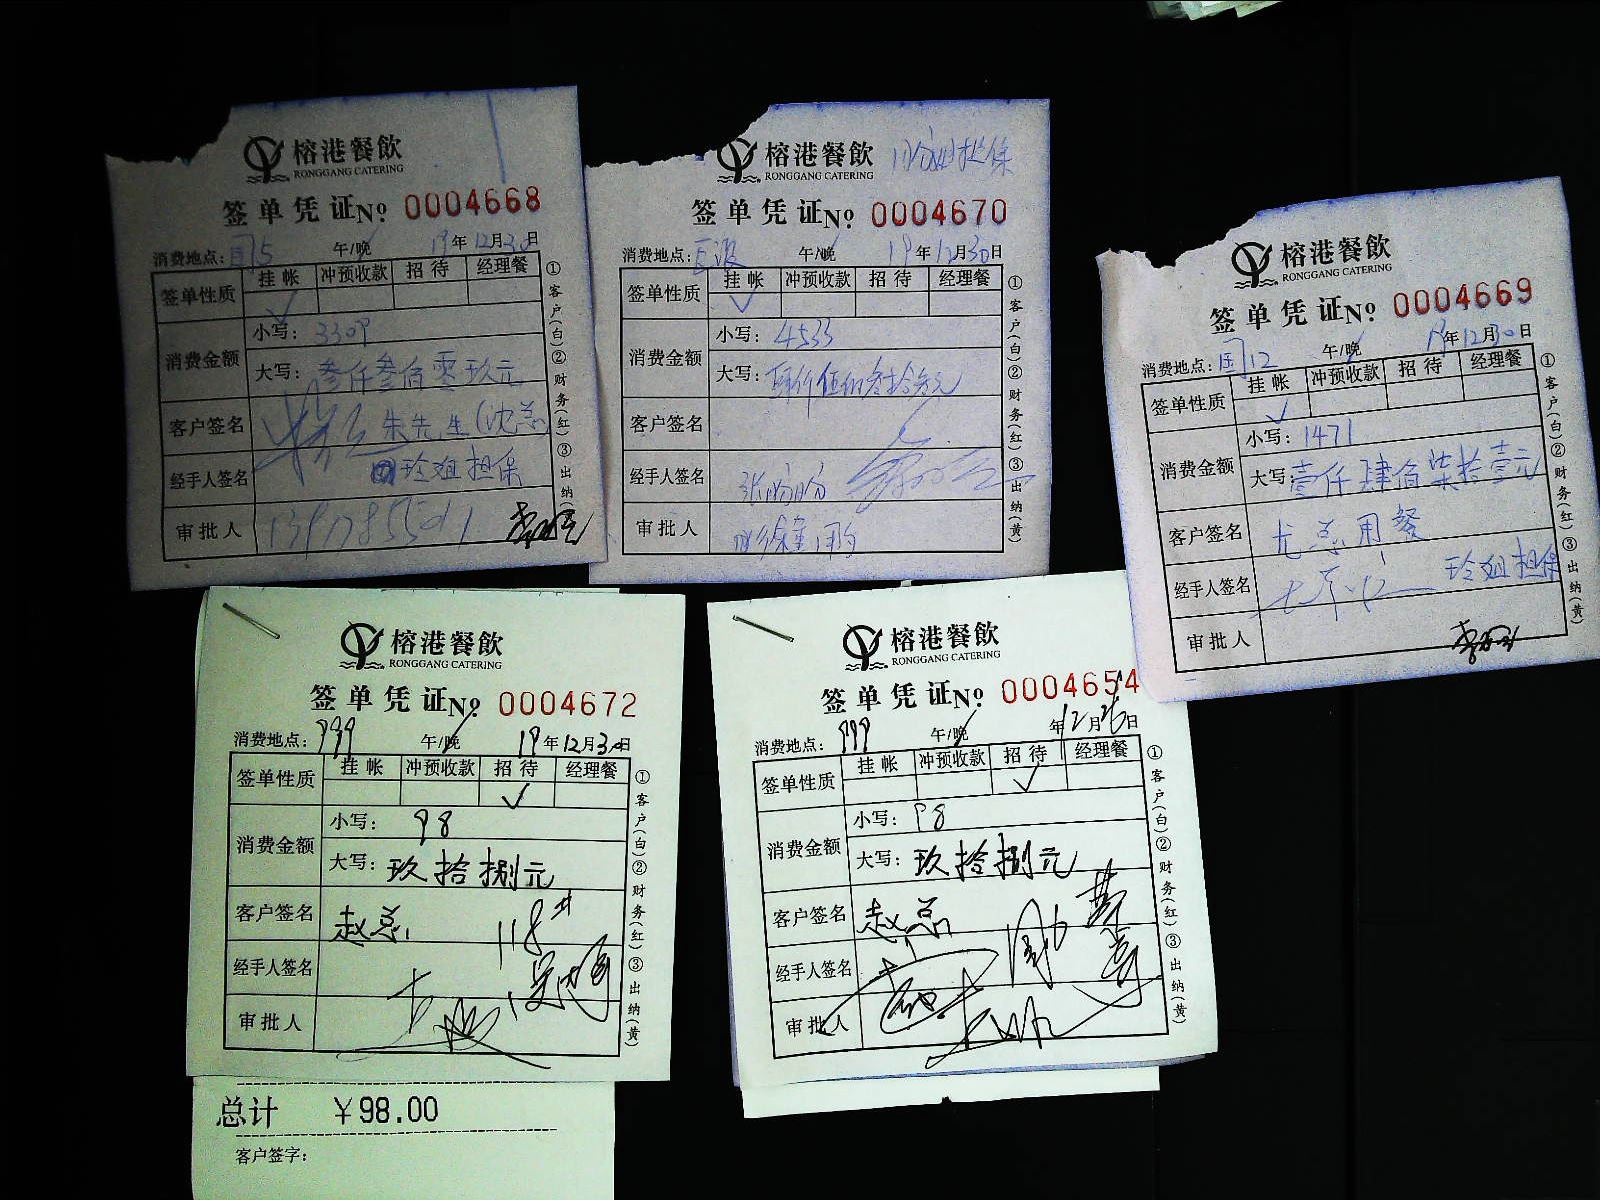 榕港餐飲
RONGGANG CATERING
签单凭证№ 0004668
消费地点: 国5 午/晚 19年12月30日
签单性质 挂帐 冲预收款 招待 经理餐
消费金额 小写: 3309
大写: 叁仟叁佰零玖元
客户签名 朱先生(沈总)
经手人签名 玲姐担保
审批人
①客户(白)②财务(红)③出纳(黄)
榕港餐飲
RONGGANG CATERING
担保
签单凭证№ 0004670
消费地点: 午/晚 19年12月30日
签单性质 挂帐 冲预收款 招待 经理餐
消费金额 小写: 4533
大写: 肆仟伍佰叁拾叁元
客户签名
经手人签名
审批人
①客户(白)②财务(红)③出纳(黄)
榕港餐飲
RONGGANG CATERING
签单凭证№ 0004669
消费地点: 国12 午/晚 19年12月30日
签单性质 挂帐 冲预收款 招待 经理餐
消费金额 小写: 1471
大写: 壹仟肆佰柒拾壹元
客户签名 尤总用餐
经手人签名 玲姐担保
审批人
①客户(白)②财务(红)③出纳(黄)
榕港餐飲
RONGGANG CATERING
签单凭证№ 0004672
消费地点: 999 午/晚 19年12月30日
签单性质 挂帐 冲预收款 招待 经理餐
消费金额 小写: 98
大写: 玖拾捌元
客户签名 赵总 118#
经手人签名
审批人
①客户(白)②财务(红)③出纳(黄)
总计 ¥98.00
客户签字:
榕港餐飲
RONGGANG CATERING
签单凭证№ 0004654
消费地点: 999 午/晚 年12月26日
签单性质 挂帐 冲预收款 招待 经理餐
消费金额 小写: 98
大写: 玖拾捌元
客户签名 赵总
经手人签名
审批人
①客户(白)②财务(红)③出纳(黄)